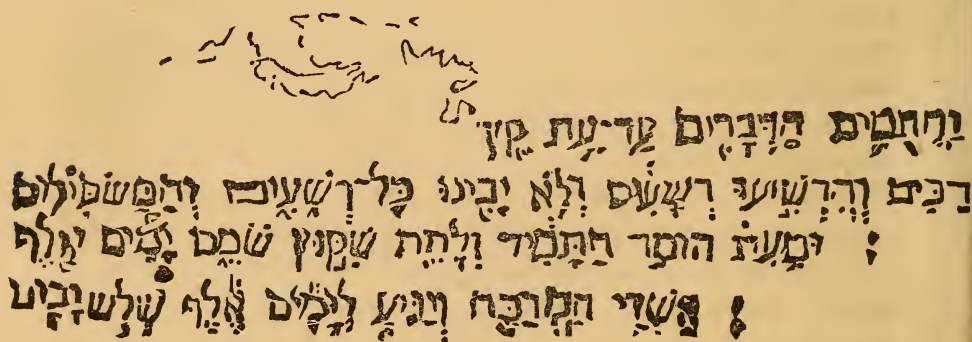 וַחֲתֻמִים הַדְּבָרִים עַד־עֵת קֵץ׃
רַבִּים וְהִרְשִׁיעוּ רְשָׁעִים וְלֹא יָבִינוּ כָּל־רְשָׁעִים וְהַמַּשְׂכִּלִים
׃ וּמֵעֵת הוּסַר הַתָּמִיד וְלָתֵת שִׁקּוּץ שֹׁמֵם יָמִים אֶלֶף
׃ אַשְׁרֵי הַמְחַכֶּה וְיַגִּיעַ לְיָמִים אֶלֶף שְׁלֹשׁ